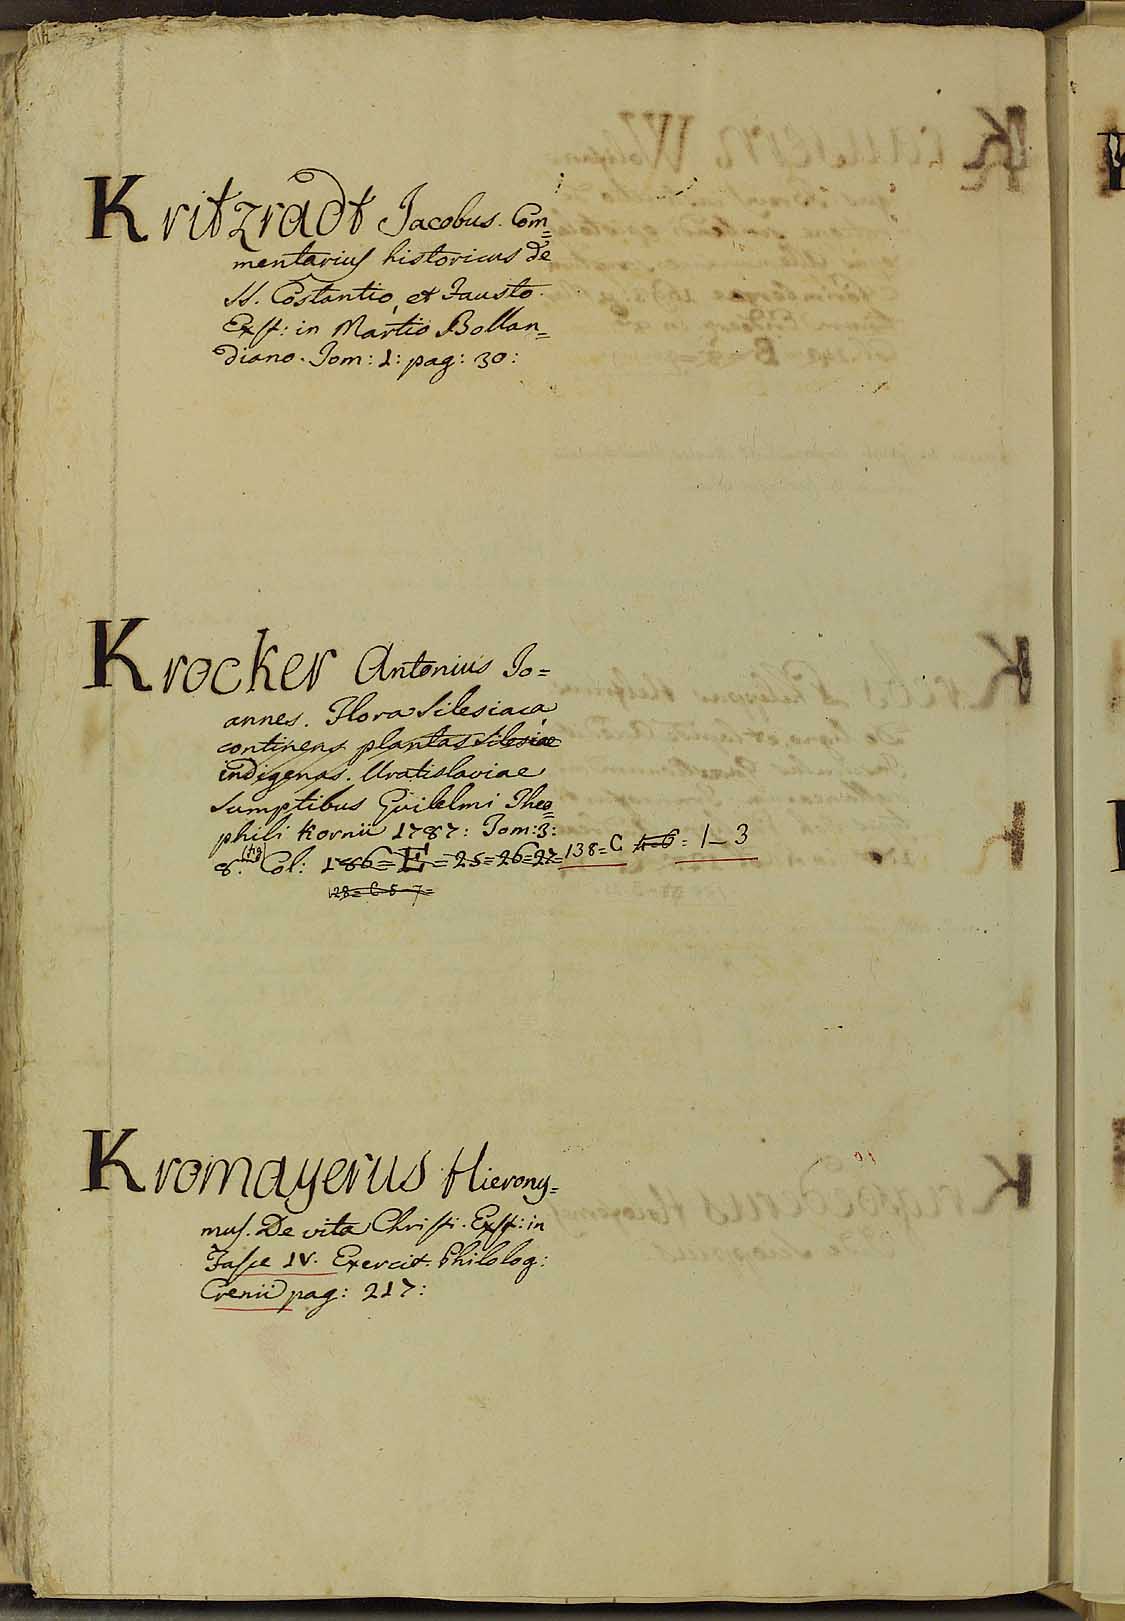 Kritzradt Jacobus. Com=
mentarius historicus de
SS. Costantio, et Fausto.
Exst: in Martio Bollan=
diano. Tom: 1: pag: 30:
Krocker Antonius Jo=
annes. Flora Silesiaca
continens plantas Silesiae
indigenas. Uratislaviae
Sumptibus Guilelmi Theo=
phili Kornii 1787: Tom: 3:
8. (fig) Col: 186= E = 25=26=27= 138= C 4=6 = 1_3
128= C 5 7=
Kromayerus Hierony=
mus. De vita Christi. Exst: in
Fasce IV. Exercit. Philolog:
Crenii pag: 217: